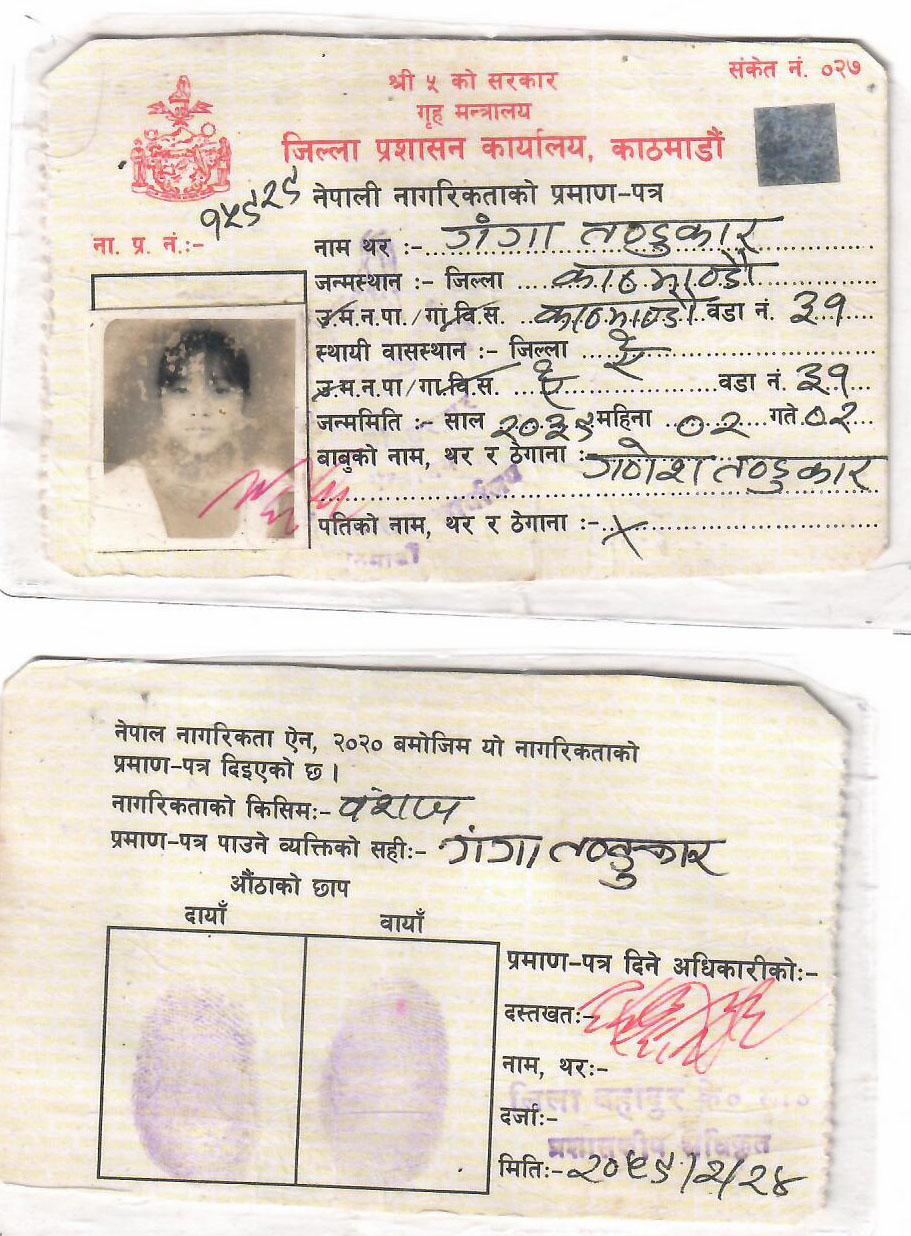 संकेत नं. ०२७
श्री ५ को सरकार
गृह मन्त्रालय
जिल्ला प्रशासन कार्यालय, काठमाडौं
नेपाली नागरिकताको प्रमाण-पत्र
ना. प्र. नं.:- १५९२९
नाम थर :- गंगा तण्डुकार
जन्मस्थान :- जिल्ला काठमाण्डौ
उ.म.न.पा./गा.वि.स. काठमाण्डौ वडा नं. ३१
स्थायी वासस्थान :- जिल्ला ऐ ऐ
उ.म.न.पा/गा.वि.स. वडा नं. ३१
जन्ममिति :- साल २०३९ महिना ०२ गते ०२
बाबुको नाम, थर र ठेगाना :- गणेश तण्डुकार
पतिको नाम, थर र ठेगाना :- x
नेपाल नागरिकता ऐन, २०२० बमोजिम यो नागरिकताको
प्रमाण-पत्र दिइएको छ ।
नागरिकताको किसिम:- वंशज
प्रमाण-पत्र पाउने व्यक्तिको सही:- गंगा तण्डुकार
औंठाको छाप
दायाँ बायाँ
प्रमाण-पत्र दिने अधिकारीको:-
दस्तखत:-
नाम, थर:-
दर्जा:-
प्रशासकीय अधिकृत
मिति:- २०५९/२/२४